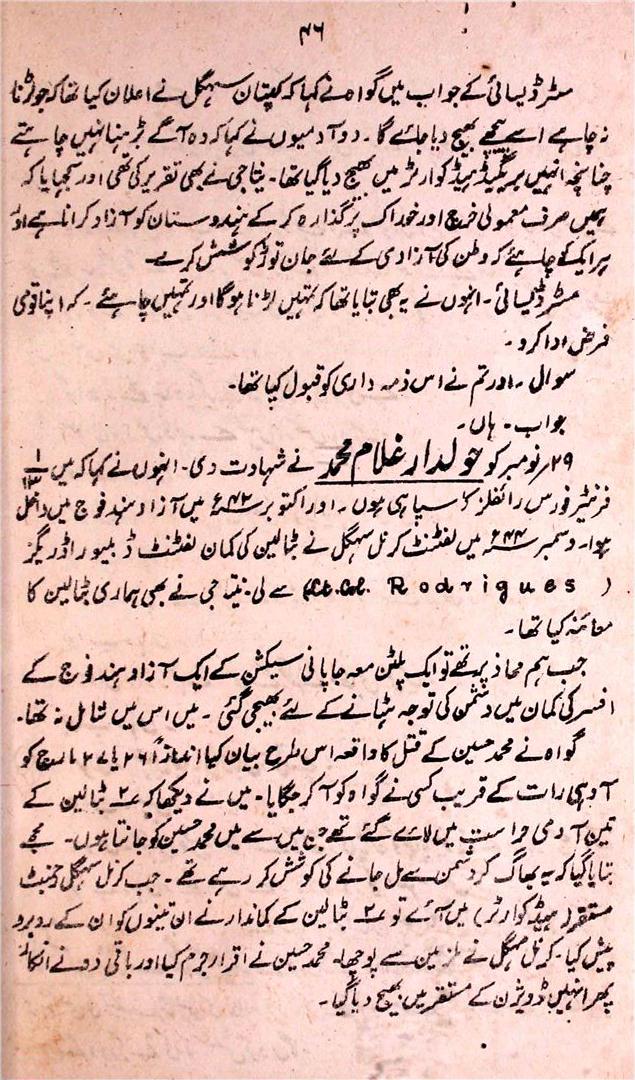 ۴۶
مسٹر ڈیسائی کے جواب میں گواہ نے کہا کہ کپتان سہگل نے اعلان کیا تھا کہ جو لڑنا
نہ چاہے اسے پیچھے بھیج دیا جائے گا۔ دو آدمیوں نے کہا کہ وہ آگے بڑھنا نہیں چاہتے
چنانچہ انہیں بریگیڈ ہیڈ کوارٹر میں بھیج دیا گیا تھا۔ نیتا جی نے بھی تقریر کی تھی اور سمجھایا کہ
ہمیں صرف معمولی خرچ اور خوراک پر گذارہ کر کے ہندوستان کو آزاد کرانا ہے اور
ہر ایک کو چاہئے کہ وطن کی آزادی کے لئے جان توڑ کوشش کرے۔
مسٹر ڈیسائی۔ انہوں نے یہ بھی بتایا تھا کہ تمہیں لڑنا ہوگا اور تمہیں چاہئے۔ کہ اپنا قومی
فرض ادا کرو۔
سوال۔ اور تم نے اس ذمہ داری کو قبول کیا تھا۔
جواب۔ ہاں۔
۲۹ نومبر کو حولدار غلام محمد نے شہادت دی۔ انہوں نے کہا کہ میں ۱/۱۳
فرنٹیر فورس رائفلز کا سپاہی ہوں۔ اور اکتوبر ۴۲ء میں آزاد ہند فوج میں داخل
ہوا۔ دسمبر ۴۴ء میں لفٹننٹ کرنل سہگل نے بٹالین کی کمان لفٹنٹ ڈبلیو راڈریگز
(Lt. Col. Rodrigues) سے لی۔ نیتا جی نے بھی ہماری بٹالین کا
معائنہ کیا تھا۔
جب ہم محاذ پر تھے تو ایک پلٹن معہ جاپانی سیکشن کے ایک آزاد ہند فوج کے
افسر کی کمان میں دشمن کی توجہ ہٹانے کے لئے بھیجی گئی۔ میں اس میں شامل نہ تھا۔
گواہ نے محمد حسین کے قتل کا واقعہ اس طرح بیان کیا اندازاً ۲۶ یا ۲۷ مارچ کو
آدھی رات کے قریب کسی نے گواہ کو آ کر جگایا۔ میں نے دیکھا کہ ۲ بٹالین کے
تین آدمی حراست میں لائے گئے تھے جن میں سے میں محمد حسین کو جانتا ہوں۔ مجھے
بتایا گیا کہ یہ بھاگ کر دشمن سے مل جانے کی کوشش کر رہے تھے۔ جب کرنل سہگل رجمنٹ
مستقر (ہیڈ کوارٹر) میں آئے تو ۲ بٹالین کے کماندار نے ان تینوں کو ان کے روبرو
پیش کیا۔ کرنل سہگل نے ملزمین سے پوچھا۔ محمد حسین نے اقرار جرم کیا اور باقی دو نے انکار۔
پھر انہیں ڈویژن کے مستقر میں بھیج دیا گیا۔